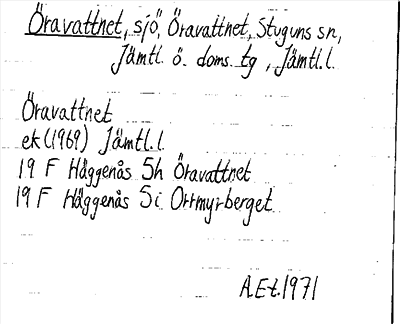 Öravattnet, sjö, Öravattnet, Stuguns sn,
Jämtl. ö. doms. tg, Jämtl.l.
Öravattnet
ek(1969) Jämtl.l.
19 F Häggenås 5h Öravattnet
19 F Häggenås 5i Orrmyrberget
A.Et.1971